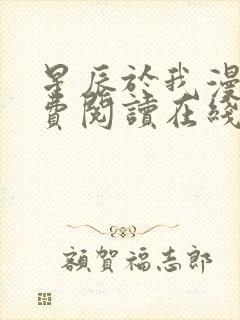 星辰於我漫
費閱讀在綫
額賀福志郎